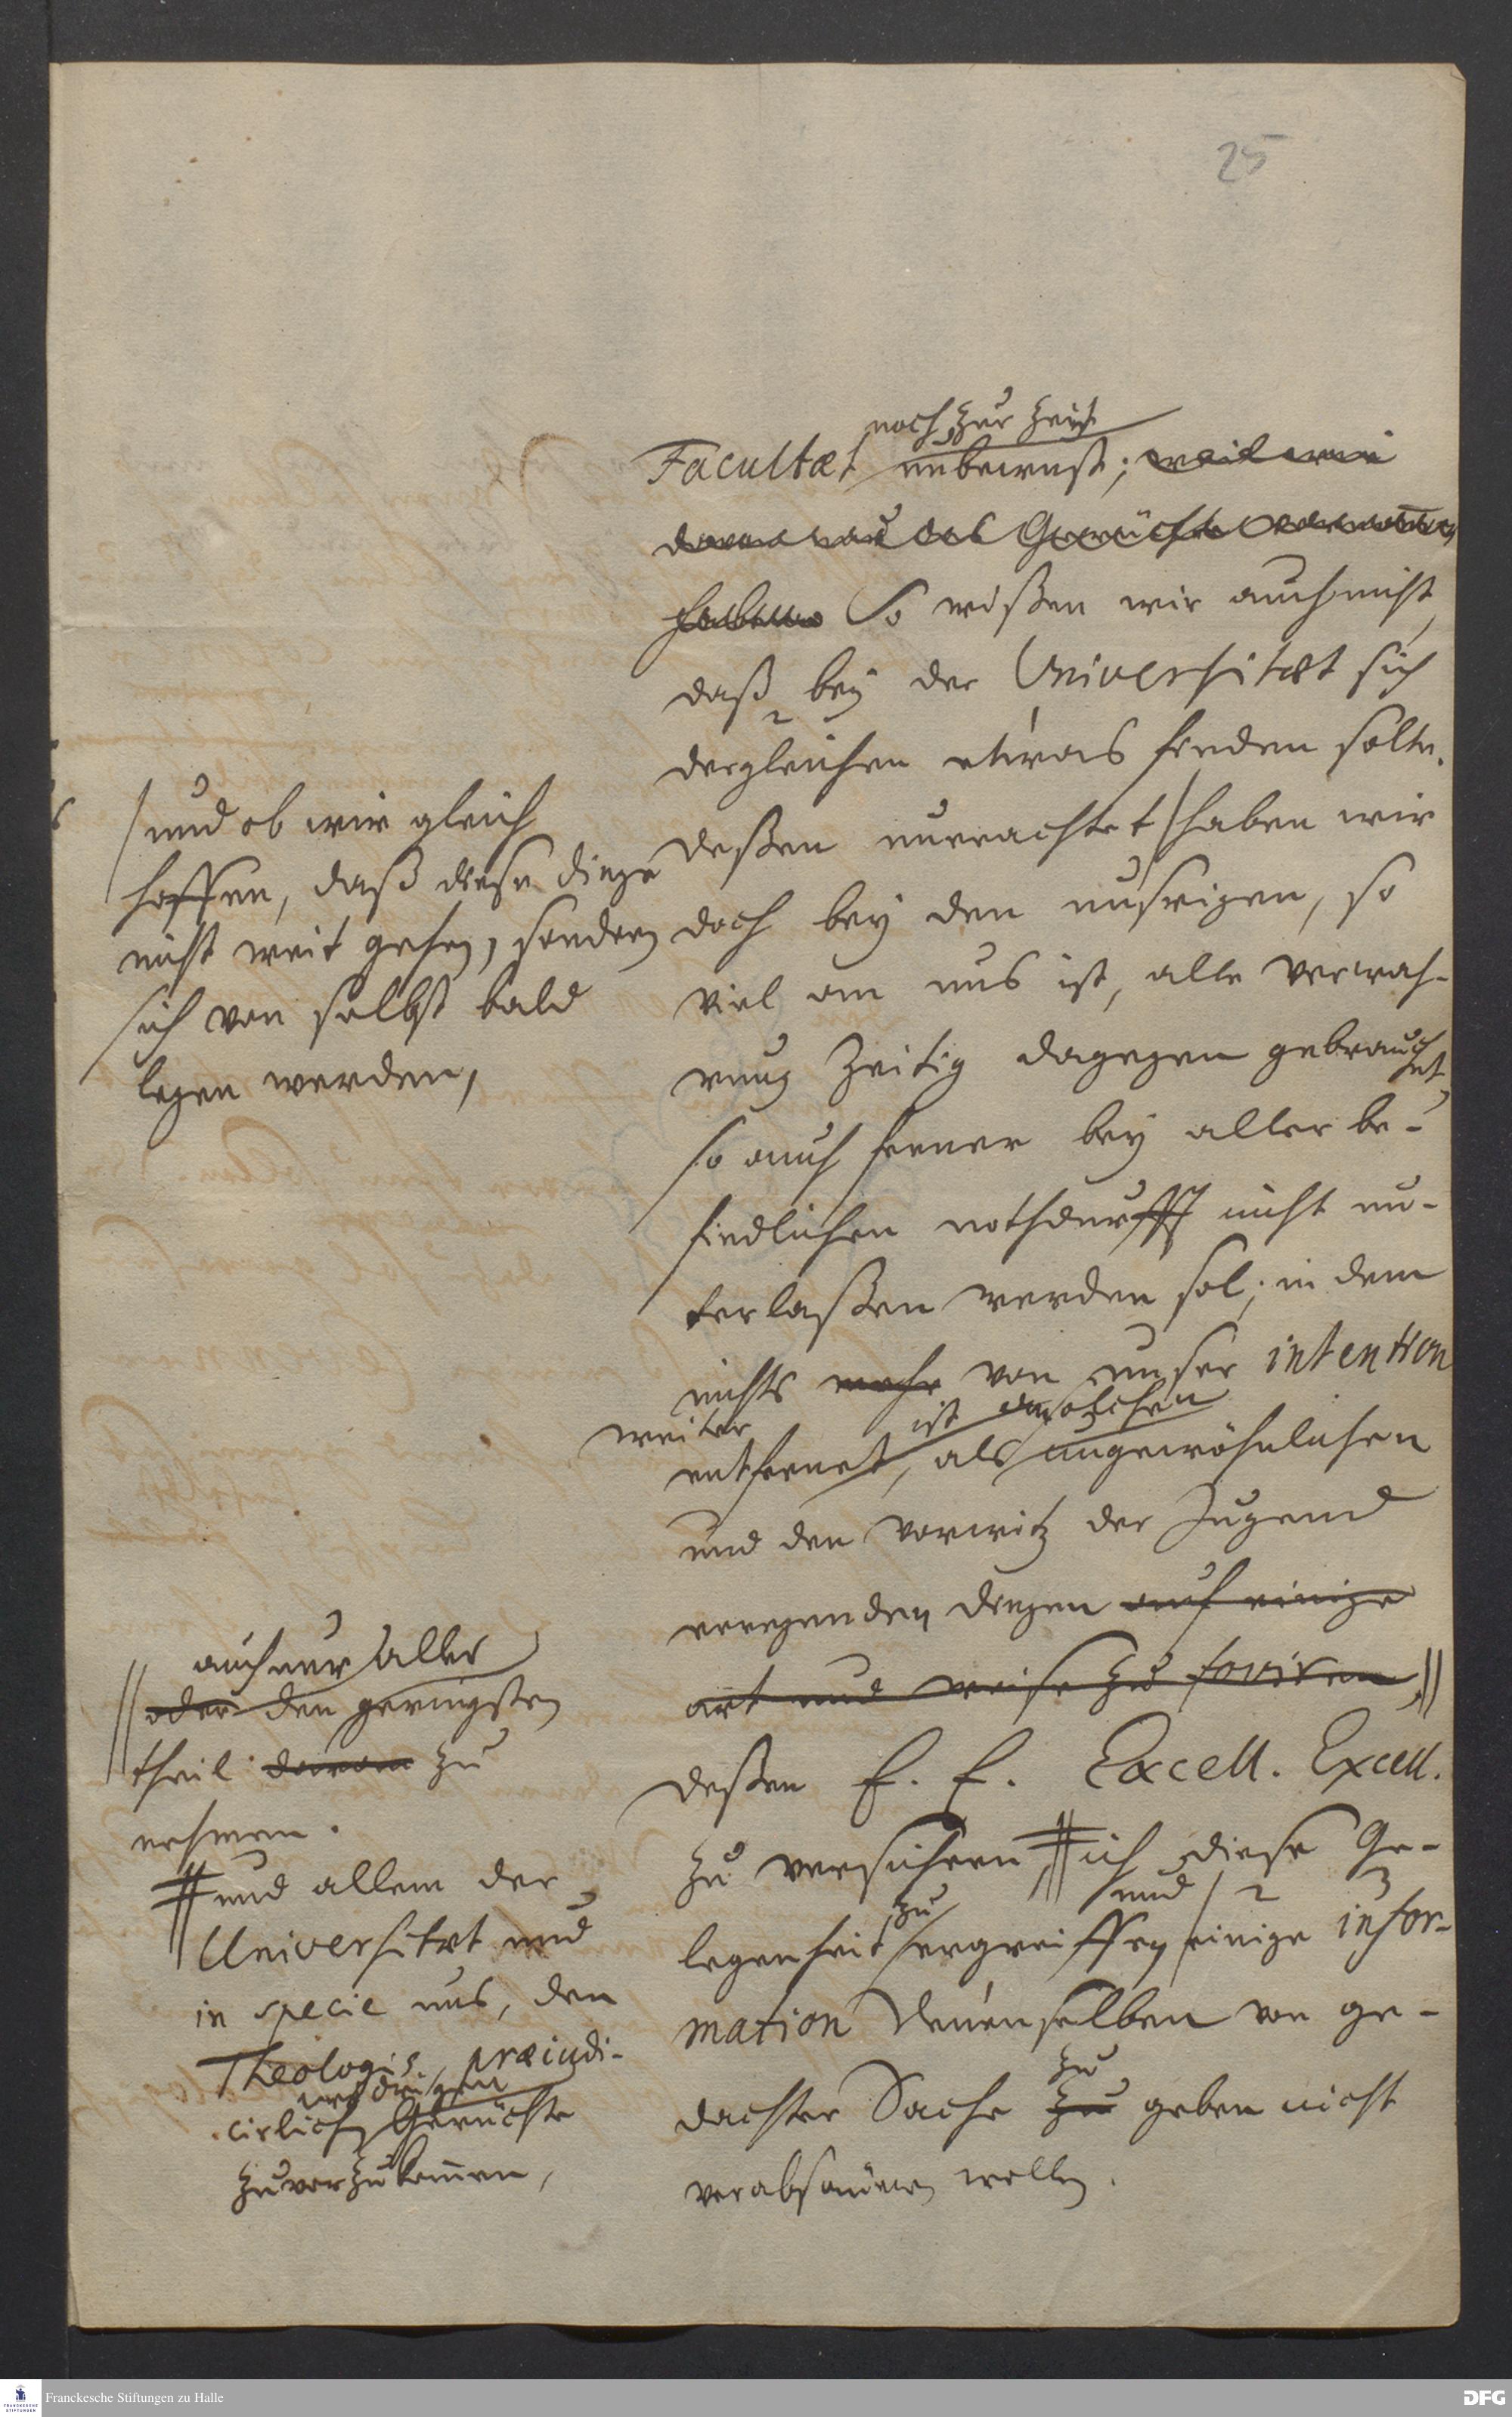 25
noch zur Zeit
Facultæt unbewust; weil wir
davon nur das Gerüchte vernommen
haben So wißen wir auch nicht,
daß bey der Universitæt sich
dergleichen etwas finden solte.
deßen unerachtet / haben wir
doch bey den unsrigen, so
viel an uns ist, alle verwah-
rung zeitig dagegen gebrauchet
so auch ferner bey aller be-
findlichen nothdurfft nicht un-
terlaßen werden sol; in dem
nichts mehr von unser intention
weiter ist an solchen
entfernet, als ungewöhnlichen
und den vorwitz der Jugend
erregenden dingen auf einige
art und weise zu foviren, //
deßen E. E. Excell. Excell.
zu versichern # ich diese Ge-
zu und
legenheit ergreiffen / einige infor-
mation Denenselben von ge-
zu
dachter Sache zu geben nicht
verabsäumen wollen.
/ und ob wir gleich
hoffen, daß diese dinge
nicht weit gehen, sondern
sich von selbst bald
legen werden,
auch nur aller
// oder den geringsten
theil davon zu
nehmen.
# und allem der
Universitæt und
in specie uns, den
Theologis, præiudi-
widrigen
cirlichen Gerüchte
zuvorzukommen,
Franckesche Stiftungen zu Halle
FRANCKESCHE STIFTUNGEN
DFG